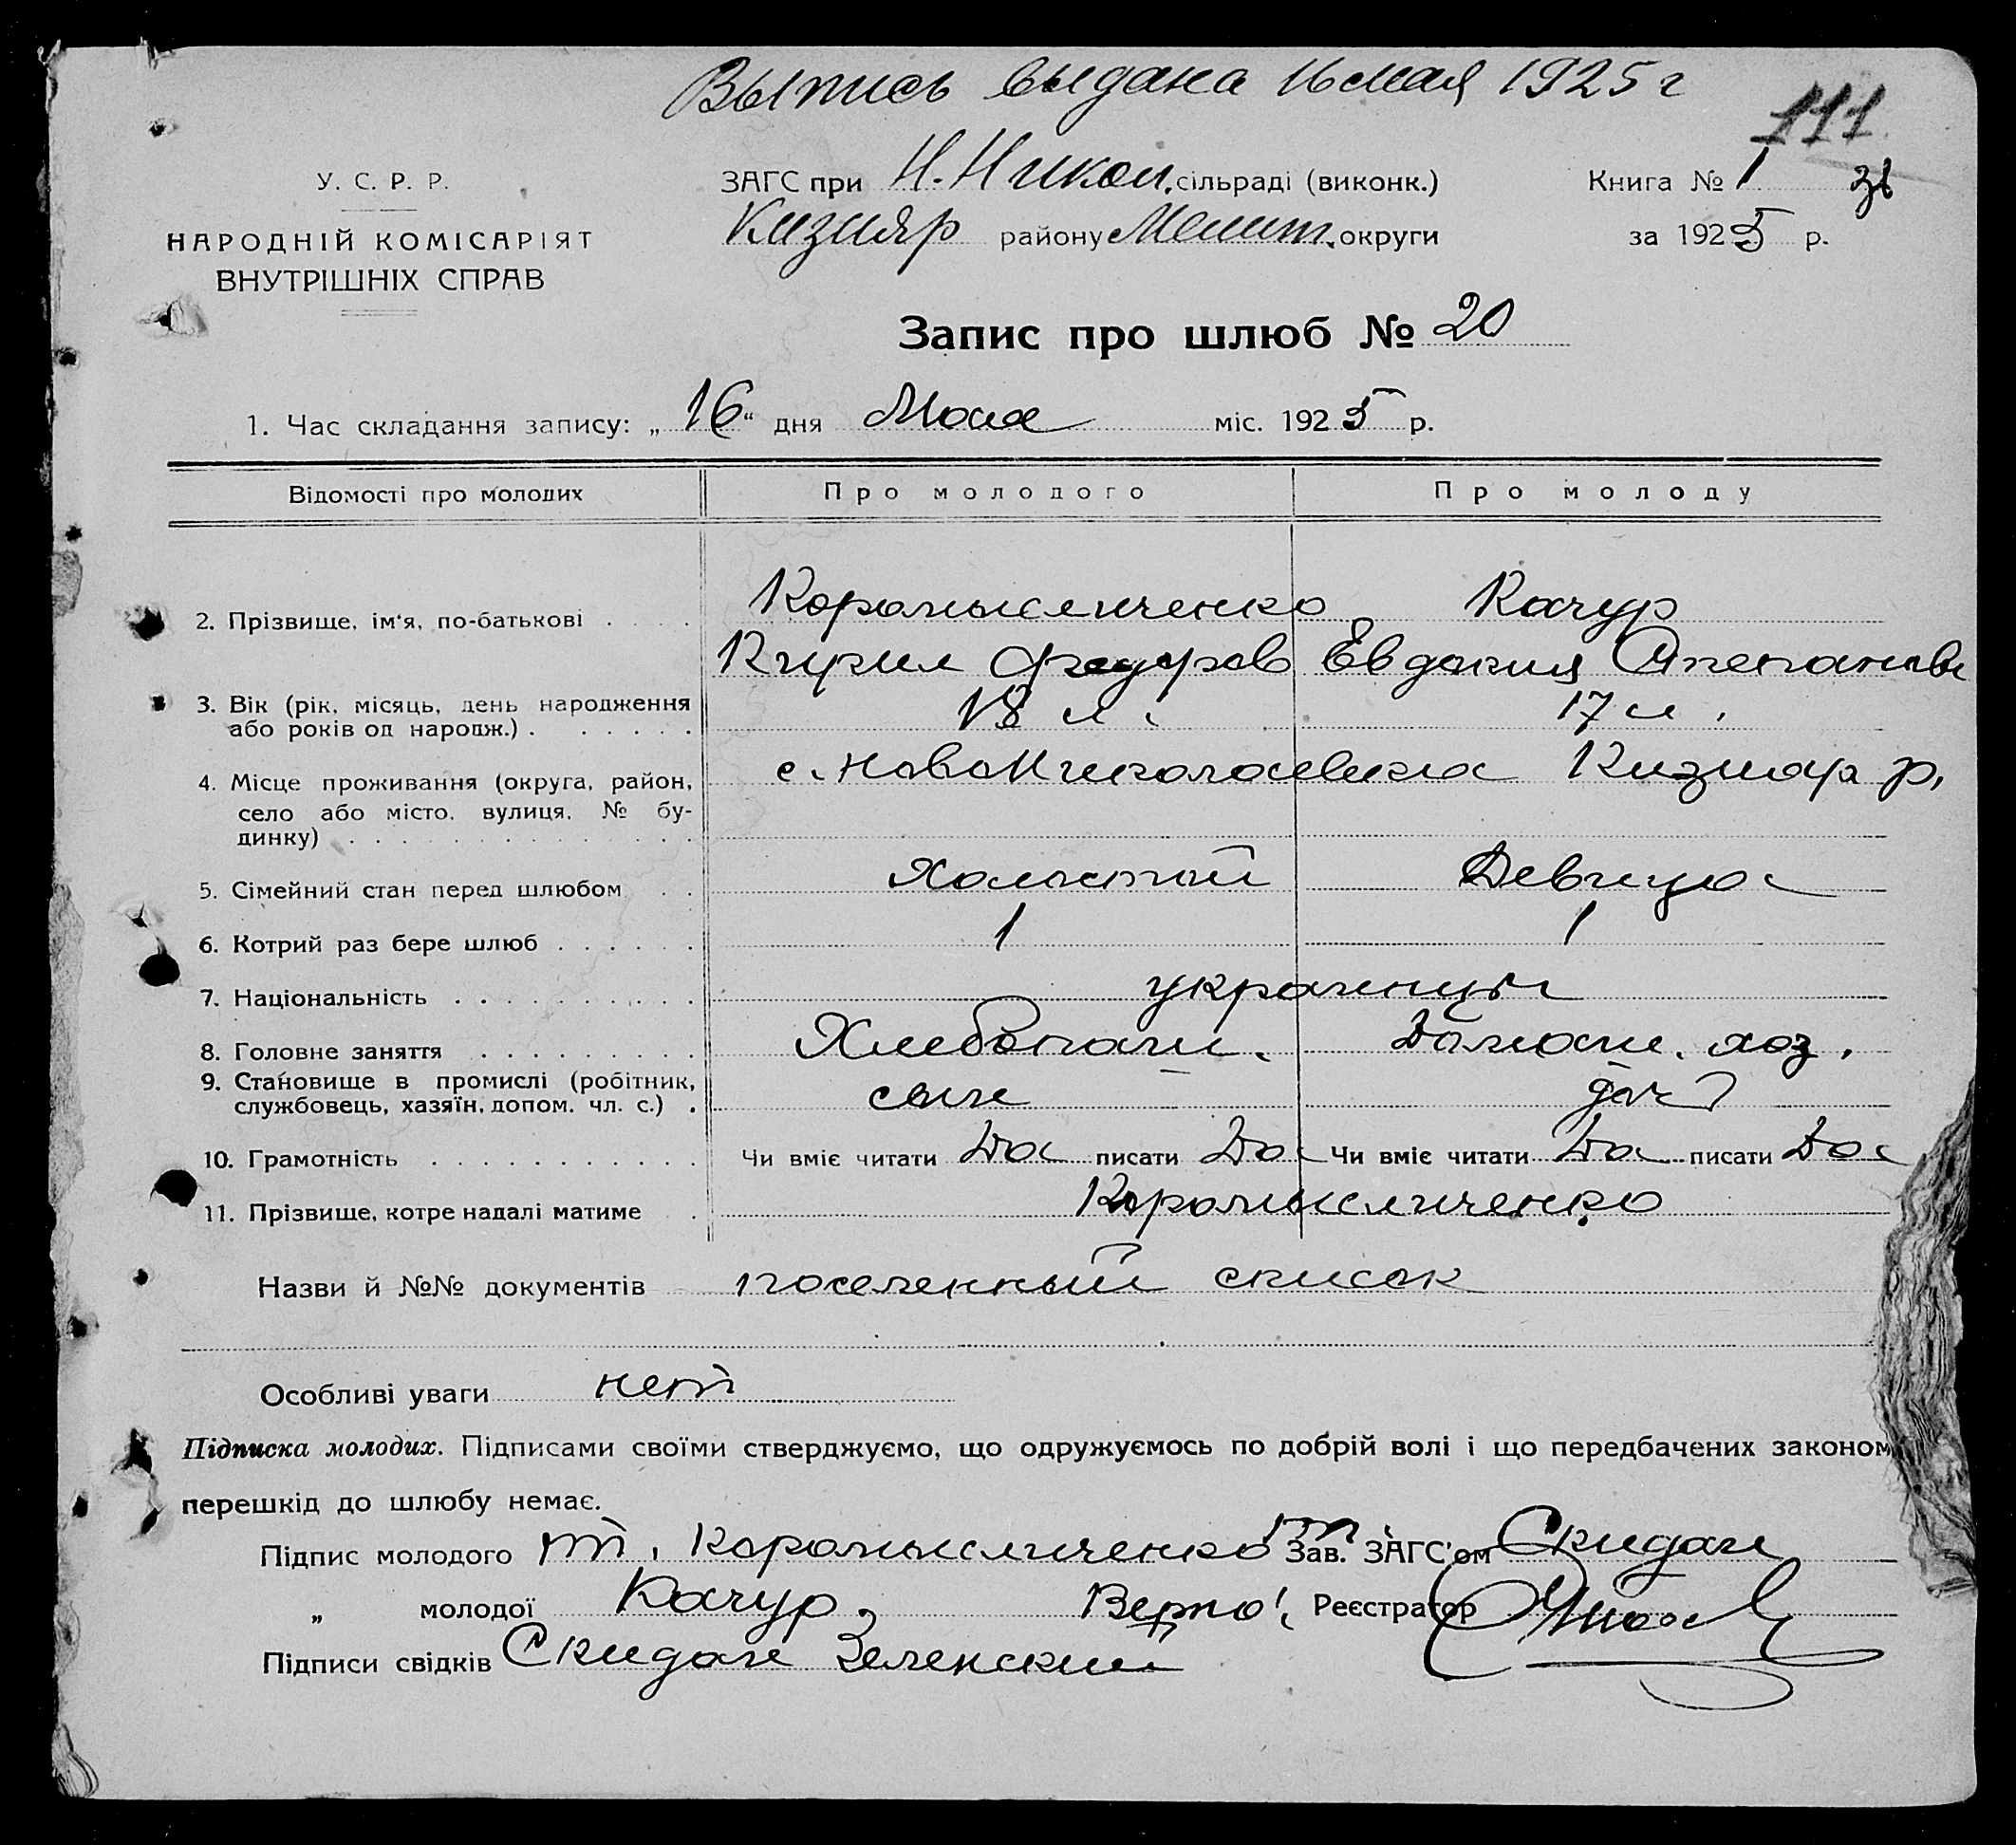 Выпись выдана 16 мая 1925 г
111
У. С. Р. Р.
НАРОДНІЙ КОМІСАРІЯТ
ВНУТРІШНІХ СПРАВ
ЗАГС при Н. Никол. сільраді (виконк.)
Кизияр району Мелит. округи
Книга № 1
за 1925 р.
Запис про шлюб № 20
1. Час складання запису: „16“ дня Мая міс. 1925 р.
Відомості про молодих Про молодого Про молоду
2. Прізвище, ім'я, по-батькові Коромысличенко Качур
Кирил Федоров Евдокия Степановн
3. Вік (рік, місяць, день народження 18 л. 17 л.
або років од народж.)
4. Місце проживання (округа, район, с. НовоНиколаевка Кизияр р.
село або місто, вулиця, № бу-
динку)
5. Сімейний стан перед шлюбом Холостой Девица
6. Котрий раз бере шлюб 1 1
7. Національність украинцы
8. Головне заняття Хлебопаш. Домашн. хоз.
9. Становище в промислі (робітник, сын доч
службовець, хазяїн, допом. чл. с.)
10. Грамотність Чи вміє читати Да писати Да Чи вміє читати Да писати Да
11. Прізвище, котре надалі матиме Коромысличенко
Назви й №№ документів поселенный список
Особливі уваги нет
Підписка молодих. Підписами своїми стверджуємо, що одружуємось по добрій волі і що передбачених законом
перешкід до шлюбу немає.
Підпис молодого Коромысличенко Зав. ЗАГС'ом Скидан
„ молодої Качур. Верно: Реєстратор
Підписи свідків Скидан Зеленский